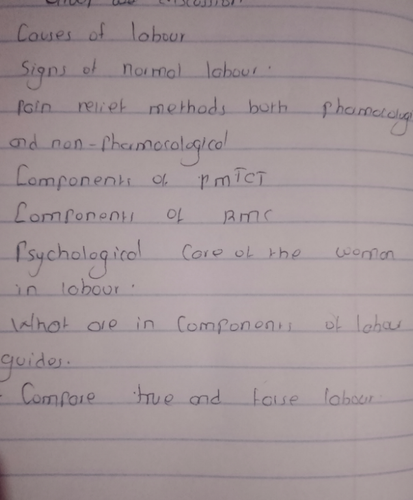 Causes of labour
Signs of normal labour.
Pain relief methods both phamacolog
and non-phamacological
Components of PMTCT
Components of RMC
Psychological Care of the women
in labour.
What are in Components of labou
guides.
Compare true and false labour.